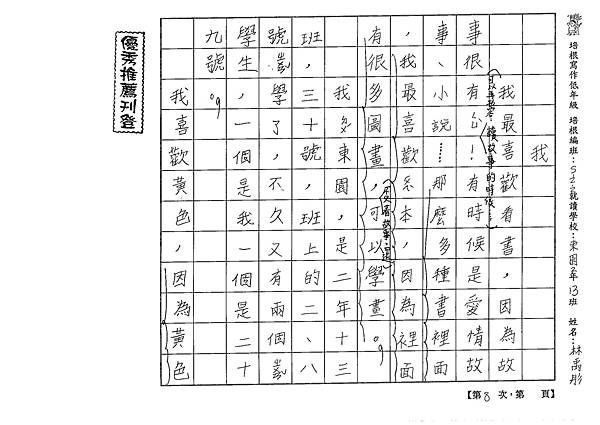 培根寫作低年級 培根編班：就讀學校：東園2年13班 姓名：林禹彤
我
我最喜歡看書，因為故
事很有！有時候是愛情故
事、小說……那麼多種書裡面
，我最喜歡本，因為裡面
有很多圖畫，可以學畫。
我東園，是二年十三
班，三十號，班上的二、八
號，學了不久又有兩個
學生，一個是我一個是二十
九號。
我喜歡黃色，因為黃色
優秀推薦刊登
【第8次，第 頁】